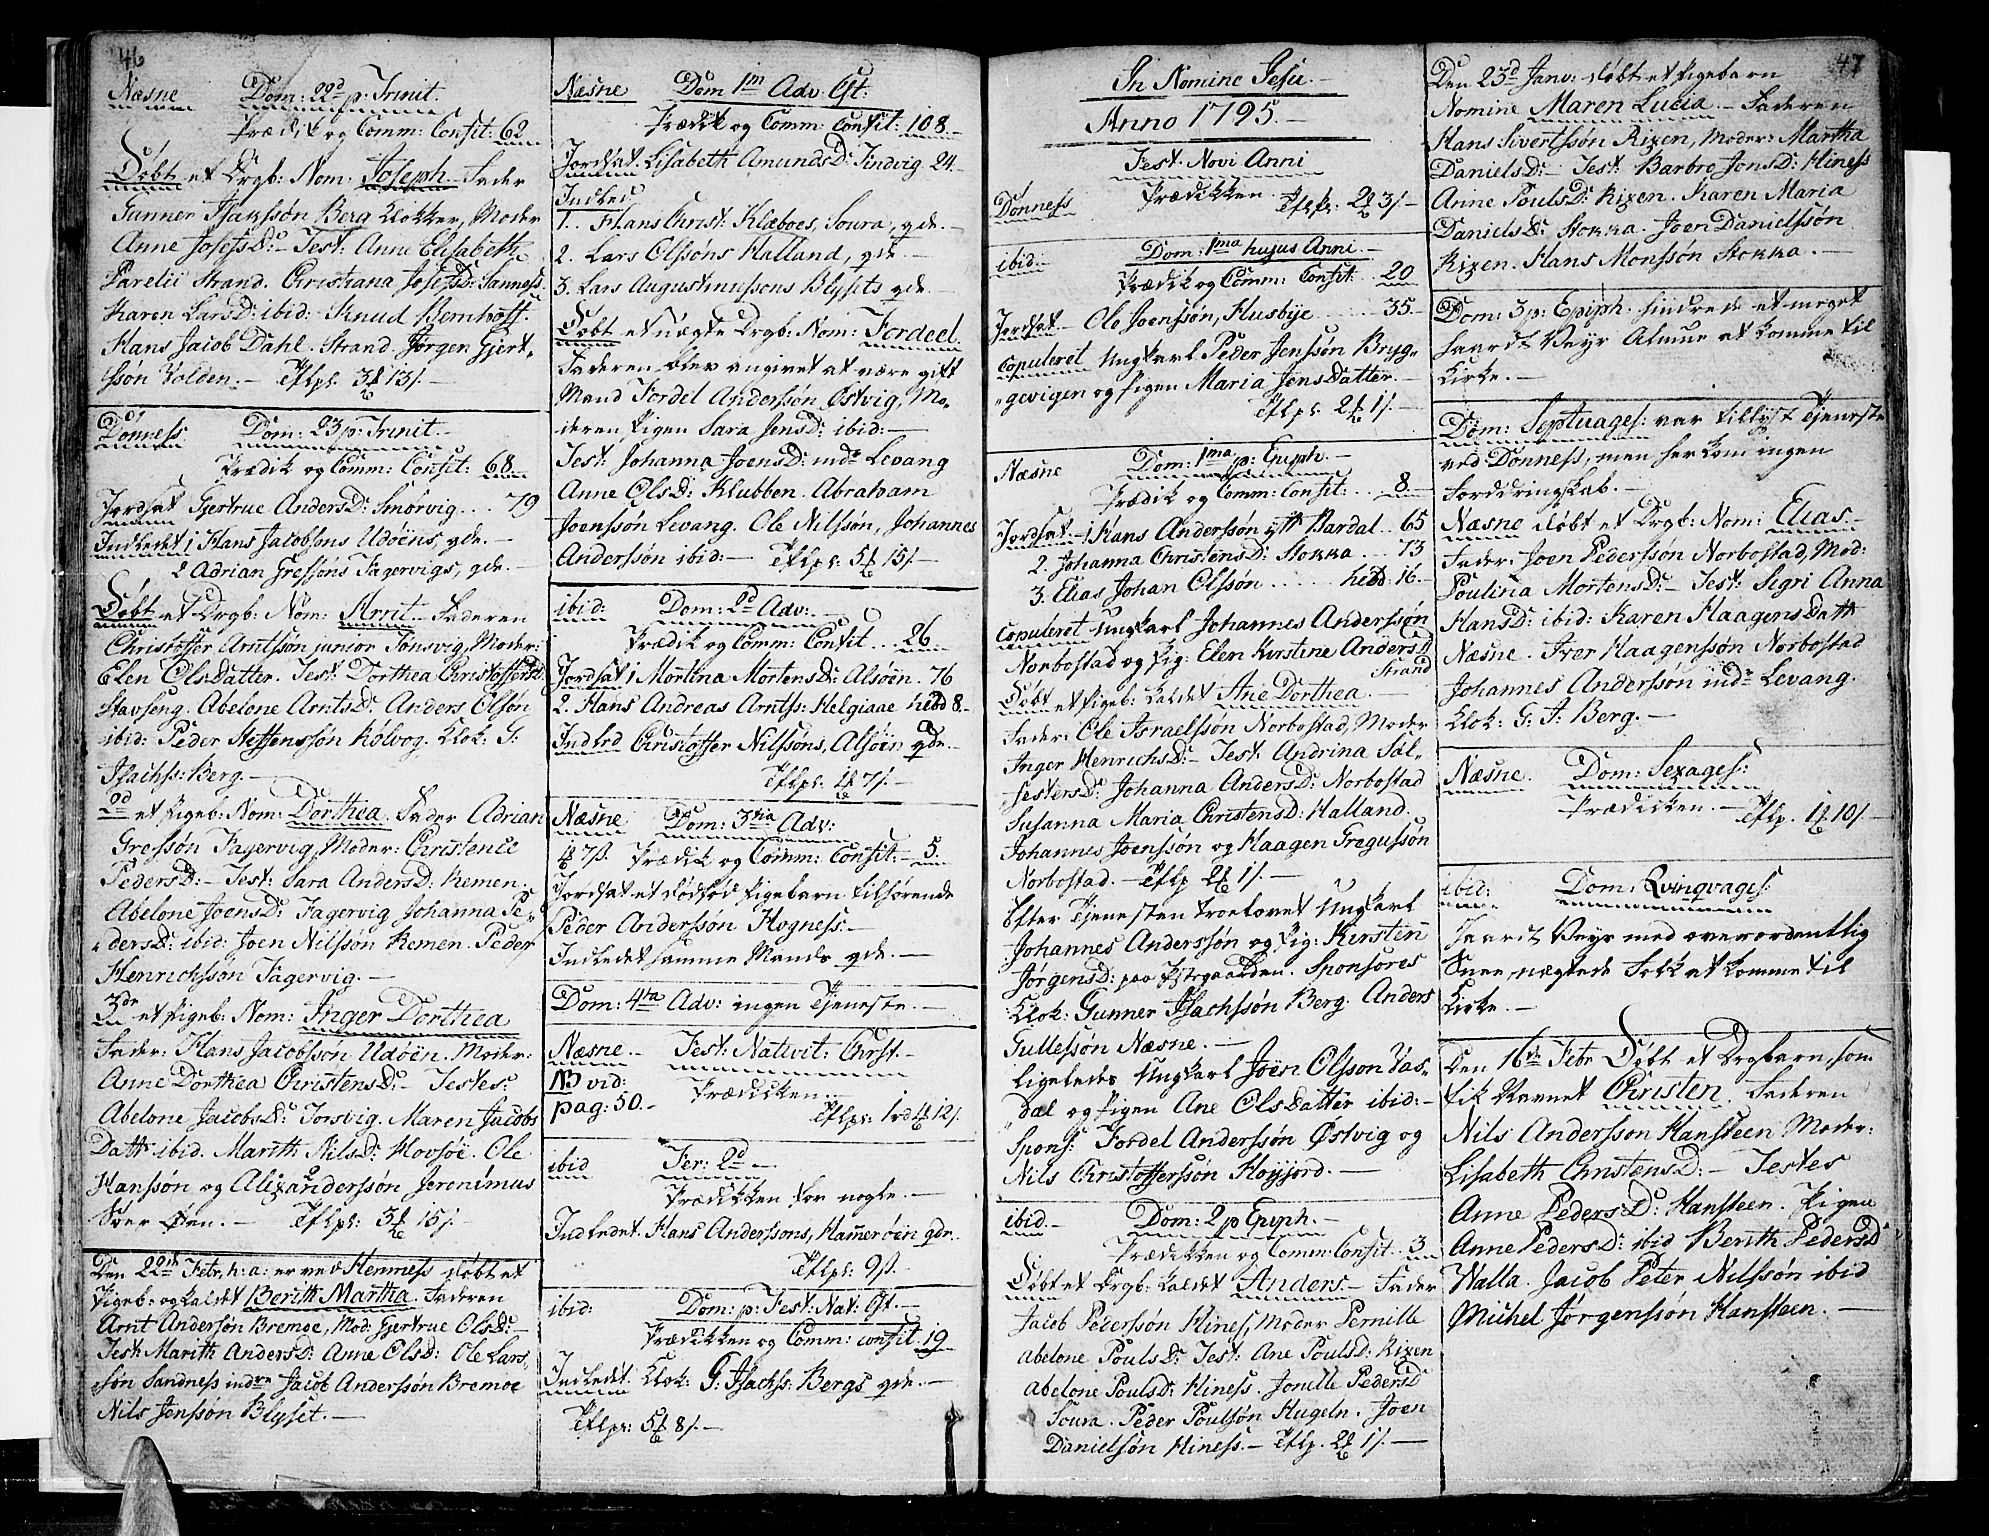 46
Næsne Dom: 22d p: Trinit.
Prædik og Comm: Confit: 62
Döbt et Drgb: Nom: Joseph. Fader
Gunner Isakssøn Berg Klokker, Moder
Anne JosefsD: Test: Anne Elisabeth
Parelii Strand. Christiana JosefsD: Sanness.
Karen LarsD: ibid: Knud Bernhoft
Hans Jacob Dahl. Strand. Jørgen Gjert-
ssön Volden.
Dönness Dom: 23 p: Trinit.
Prædik og Comm: Confit: 68
Jordsat Gjertrue AndersD: Smörvig... 79
Indledet 1 Hans Jacobssøns Udöens, qde.
2 Adrian Gressøns Fagervigs, qde.
Döbt et Drgb: Nom: Arnt. Faderen
Christoffer Arntssön junior Tonsvig, Moder:
Elen OlsDatter. Test: Dorthea ChristoffersD:
Stavseng. Abelone ArntsD: Anders Olsön
ibid: Peder Steffenssön Kölvog. Klok: G:
Isachss: Berg.
2d et Pigeb: Nom: Dorthea. Fader Adrian
Gressön Fagervig, Moder: Christence
PedersD: Test: Sara AndersD: Remen.
Abelone JoensD: Fagervig. Johanna Pe-
dersD: ibid: Joen Nilssön Remen. Peder
Henrichssön Fagervig.
3de et Pigeb: Nom: Inger Dorthea
Fader: Hans Jacobssön Udöen. Moder:
Anne Dorthea ChristensD: Testes:
Abelone JacobsD: Torsvig. Maren Jacobs
Datt: ibid. Marith NilsD: Hovsöe. Ole
Hanssön og Alexanderssön Jeronimus
Sver Öen.
Den 22de Febr. h: a: er ved Henness döbt et
Pigeb: og kaldet Berith Martha. Faderen
Arnt Andersön Bremoe, Mod: Gjertrue OlsD:
Test: Marith AndersD: Anne OlsD: Ole Lars
sön Sandness indre Jacob Anderssön Bremoe
Nils Jenssön Blyset.
Næsne Dom 1m Adv: Cst:
Prædik og Comm: Confit: 108
Jordsat. Lisabeth AmundsD: Findvig 24
Indled:
1. Hans Christ: Klæboes, Soura, qde.
2. Lars Olssöns Halland, qde.
3. Lars Augustinussøns Blysets qde.
Döbt et uægte Drgb: Nom: Fordeel.
Faderen blev angivet at være gift
Mand Fordel Anderssön Östvig, Mo-
deren Pigen Sara JensD: ibid:
Test: Johanna JoensD: indre Levang
Anne OlsD: Klubben. Abraham
Joenssön Levang. Ole Nilssön, Johannes
Anderssön ibid:
ibid: Dom: 2d Adv:
Prædik og Comm: Confit... 26
Jordsat 1 Mortina MortensD: Alsöen. 76
2. Hans Andreas Arntss: Helgiaae hebd 8.
Indled Christoffer Nilssöns, Alsöen qde.
Næsne Dom: 3tia Adv:
Prædik og Comm: Confit: 5.
Jordsat et dödföd Pigebarn tilhörende
Peder Anderssön Hogness.
Indledet samme Mands qde.
Dom: 4ta Adv: ingen Tjeneste.
Næsne Fest: Nativit: Chrst.
NB vid: Prædicken
pag: 50.
ibid Fer: 2d
Prædikken for nogle.
Indledet Hans Anderssøns, Hammeröen qde.
ibid: Dom: p: Fest: Nat: Cst.
Prædikken og Comm: Confit 19
Indledet. Klok: G: Isachss: Bergs qde.
In Nomine Jesu.
Anno 1795.
Fest: Novi Anni
Dönness Prædikken
ibid: Dom: 1ma hujus Anni.
Prædik og Comm: Confit: 20
Jordsat Ole Joenssön, Husbije 35
Copuleret Ungkarl Peder Jenssön Bryg-
gevigen og Pigen Maria JensDatter.
Næsne Dom: 1ma p: Epiph.
Prædik og Comm: Confit: 8
Jordsat 1 Hans Anderssön ytt: Bardal 65
2. Johanna ChristensD: Stokka 73
3. Elias Johan Olssön hebd. 16
Copuleret Ungkarl Johannes Anderssön
Norbostad og Pig: Elen Kirstine AndersD
Strand
Döbt et Pigeb: kaldet Ane Dorthea.
Fader: Ole Israelssön Norbostad, Moder
Inger HenrichsD: Test: Andrina Sal-
vestersD: Johanna AndersD: Norbostad
Susanna Maria ChristensD: Halland.
Johannes Joenssön og Haagen Gregussön
Norbostad.
Efter Tjenesten troelovet Ungkarl
Johannes Anderssön og Pig: Kirsten
JörgensD: paa Prstegaarden. Sponsores
Klok: Gunner Isachssön Berg. Anders
Gullessön Næsne.
Ligeledes Ungkarl Joen Olsson Vas-
dal og Pigen Ane OlsDatter ibid:
Spons: Fordel Anderssön Östvig og
Nils Christofferssön Hoyjord.
ibid. Dom: 2 p Epiph.
Prædikken og Comm: Confit. 3
Döbt et Drgb: kaldet Anders. Fader
Jacob Pederssön Hines, Moder Pernille
Abelone PoulsD: Test: Ane PoulsD: Rixen
Abelone PoulsD: Hiness. Jonille PedersD
Soura. Peder Poulssön Hugeln. Joen
Danielsön Hiness.
47
Den 23d Janv: döbt et Pigebarn
Nomine Maren Lucia. Faderen
Hans Sivertssön Rixen, Moder: Martha
DanielsD: Test: Barbro JonsD: Hiness
Anne PoulsD: Rixen. Karen Maria
DanielsD: Stokka. Joen Danielssön
Rixen. Hans Monssön Stokka.
Dom: 3 p: Epiph. hindrede et meget
haardt Veyr Almue at komme til
Kirke.
Dom: Septuages: var tillyst Tjeneste
ved Dönness, men her kom ingen
Forddringskab.
Næsne döbt et Drgb: Nom: Elias
Fader: Joen Pederssön Norbostad, Mod:
Paulina MortensD: Test: Sigri Anna
HansD: ibid: Karen HaagensDatt:
Næsne. Iver Haagenssön Norbostad
Johannes Anderssön indre Levang.
Klok: G. I: Berg.
Næsne. Dom: Sexages:
Prædicken.
ibid: Dom: Qvinqvages:
Haardt Veyr med overordentlig
Snee nægtede Folk at komme til
Kirke.
Den 16de Febr Döbt et Drgbarn, som
fik Navnet Christen. Faderen
Nils Andersson Hansteen Moder:
Lisabeth ChristensD: Testes
Anne PedersD: Hansteen. Pigen
Anne PedersD: ibid Berith PedersD
Walla. Jacob Peter Nilssön ibid
Michel Jörgenssön Hansteen.